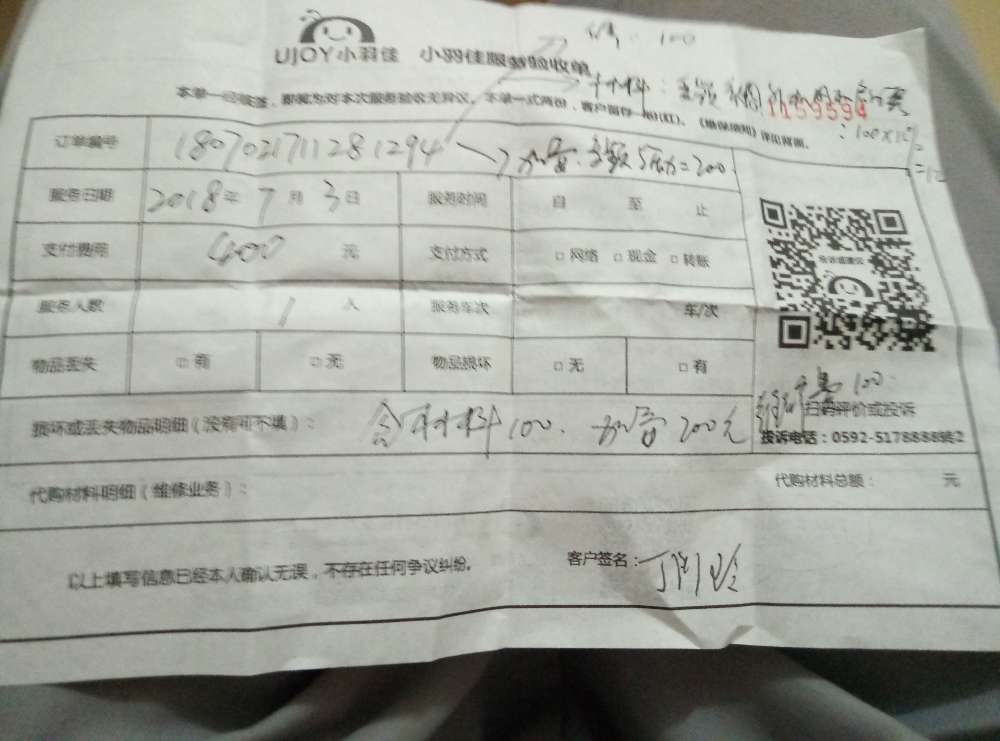 100
UJOY小羽佳 小羽佳服务验收单
材料:
本单一经被签，即视为对本次服务验收无异议。本单一式两份，客户留存一份(红)。《维保须知》详见背面。
1159594
:100×1
订单编号 1807021711281294 加雪 5压力=200
服务日期 2018年7月3日 服务时间 自 至 止
支付费用 400 元 支付方式 □网络 □现金 □转账
服务人数 1 人 服务车次 车/次
物品丢失 □有 □无 物品损坏 □无 □有
投诉或建议
费100.
扫码评价或投诉
投诉电话：0592-5178888转2
损坏或丢失物品明细（没有可不填）： 含材料100. 加雪200元
代购材料明细（维修业务）： 代购材料总额： 元
以上填写信息已经本人确认无误，不存在任何争议纠纷。 客户签名：